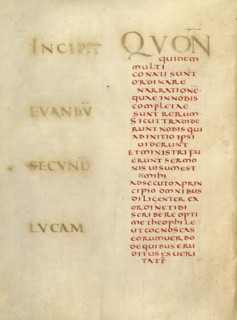 INCIPIT
EUANḠV̄
SECUND̄
LUCAM
QUOÑ
QUIDEM
MULTI
CONATI SUNT
ORDINARE
NARRATIONE
QUAE IN NOBIS
COMPLETAE
SUNT RERUM
SICUT TRADIDE
RUNT NOBIS QUI
AB INITIO IPSI
UIDERUNT
ET MINISTRI FU
ERUNT SERMO
NIS UISUM EST
ET MIHI
ADSECUTO A PRIN
CIPIO OMNIBUS
DILIGENTER EX
ORDINE TIBI
SCRIBERE OPTI
ME THEOPHILE
UT COGNOSCAS
EORUM UERBO
DE QUIBUS ERU
DITUS ES UERI
TATĒ